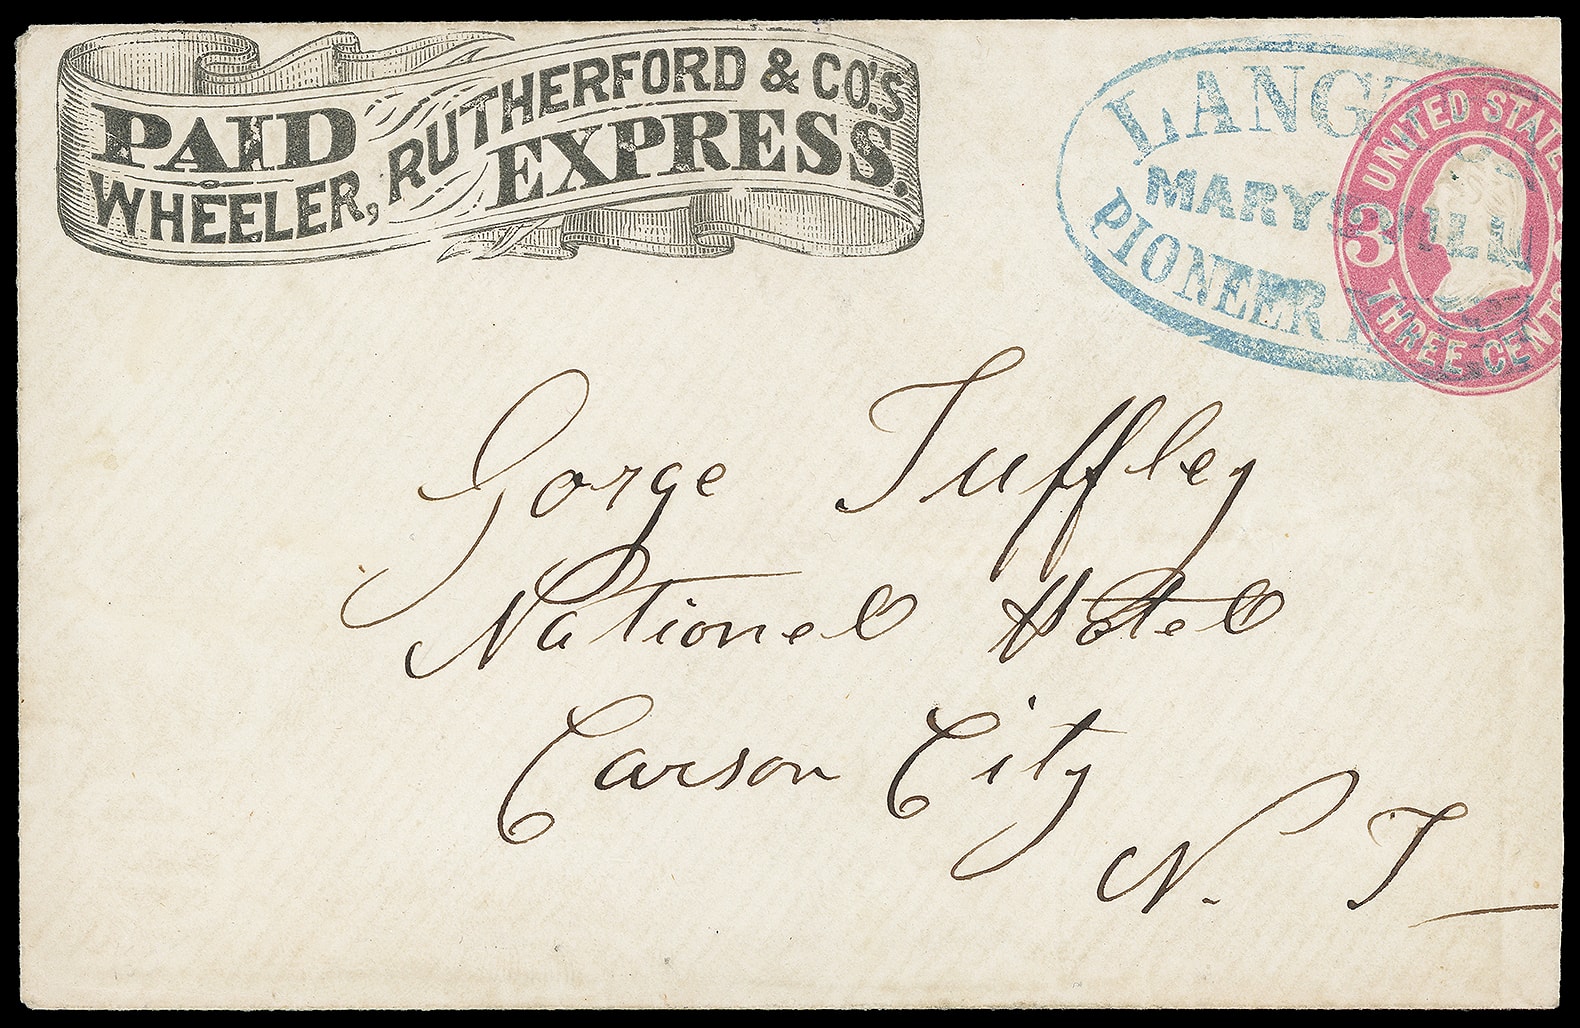 PAID
WHEELER, RUTHERFORD & CO.'S
EXPRESS.
MARYSVILL
PIONEER
UNITED STATES
3
THREE CENTS
Gorge Tuffley
National Hotel
Carson City
N. T